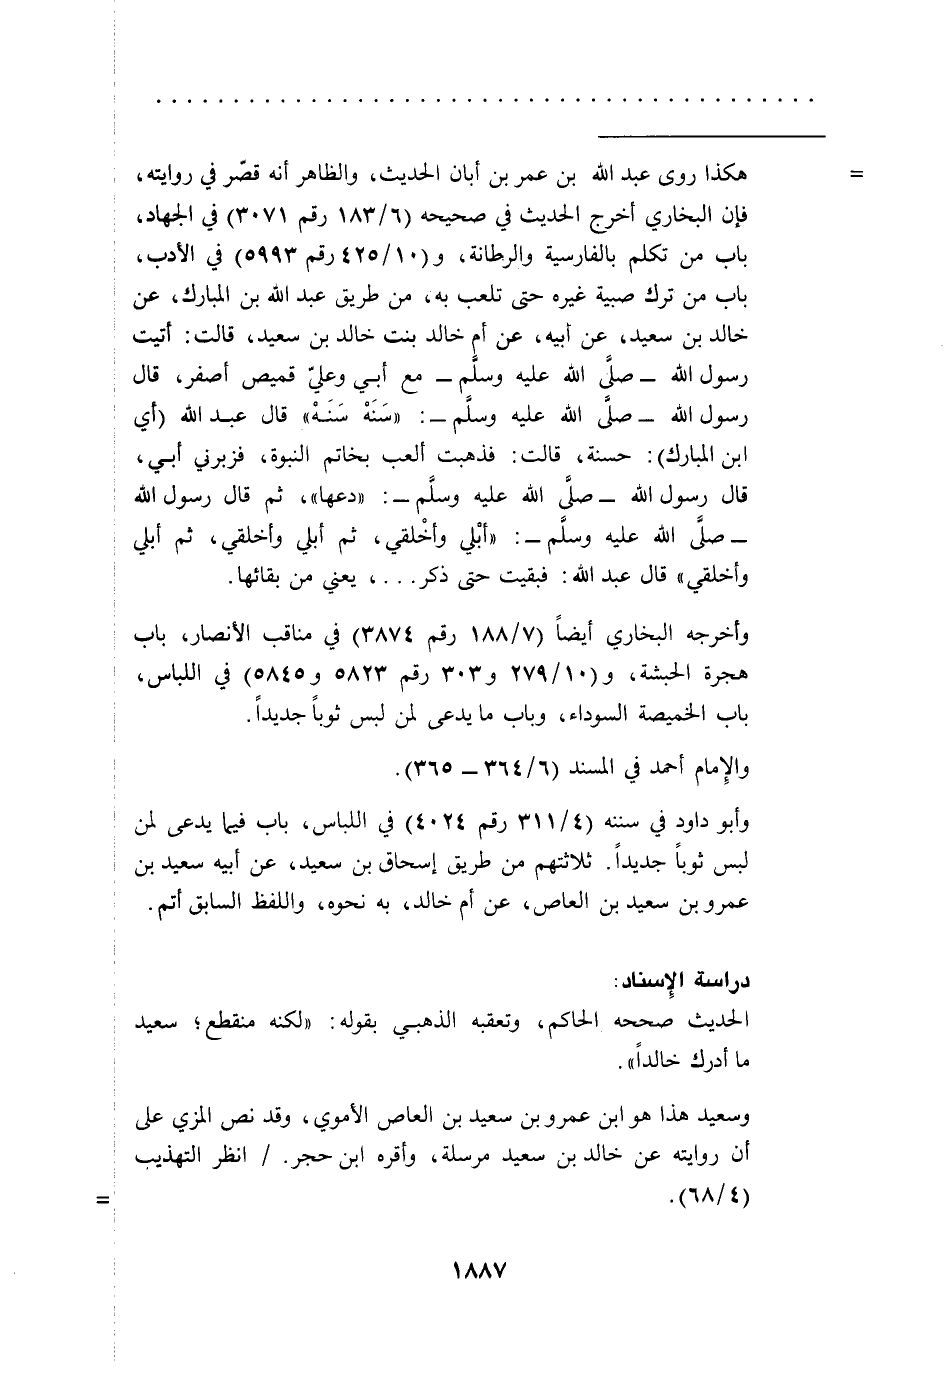 . . . . . . . . . . . . . . . . . . . . . . . . . . . . . . . . . . . . . . . . . . .
= هكذا روى عبد الله بن عمر بن أبان الحديث، والظاهر أنه قصّر في روايته،
فإن البخاري أخرج الحديث في صحيحه (٦/ ١٨٣ رقم ٣٠٧١) في الجهاد،
باب من تكلم بالفارسية والرطانة، و (١٠/ ٤٢٥ رقم ٥٩٩٣) في الأدب،
باب من ترك صبية غيره حتى تلعب به، من طريق عبد الله بن المبارك، عن
خالد بن سعيد، عن أبيه، عن أم خالد بنت خالد بن سعيد، قالت: أتيت
رسول الله ــ صلَّى الله عليه وسلَّم ــ مع أبـي وعليّ قميص أصفر، قال
رسول الله ــ صلَّى الله عليه وسلَّم ــ: «سَنَهْ سَنَهْ» قال عبد الله (أي
ابن المبارك): حسنة، قالت: فذهبت ألعب بخاتم النبوة، فزبرني أبـي،
قال رسول الله ــ صلَّى الله عليه وسلَّم ــ: «دعها»، ثم قال رسول الله
ــ صلَّى الله عليه وسلَّم ــ: «أبْلي وأخْلقي، ثم أبلي وأخلقي، ثم أبلي
وأخلقي» قال عبد الله: فبقيت حتى ذكر. . . ، يعني من بقائها.
وأخرجه البخاري أيضاً (٧/ ١٨٨ رقم ٣٨٧٤) في مناقب الأنصار، باب
هجرة الحبشة، و (١٠/ ٢٧٩ و ٣٠٣ رقم ٥٨٢٣ و ٥٨٤٥) في اللباس،
باب الخميصة السوداء، وباب ما يدعى لمن لبس ثوباً جديداً.
والإمام أحمد في المسند (٦/ ٣٦٤ ــ ٣٦٥).
وأبو داود في سننه (٤/ ٣١١ رقم ٤٠٢٤) في اللباس، باب فيما يدعى لمن
لبس ثوباً جديداً. ثلاثتهم من طريق إسحاق بن سعيد، عن أبيه سعيد بن
عمرو بن سعيد بن العاص، عن أم خالد، به نحوه، واللفظ السابق أتم.
دراسة الإسناد:
الحديث صححه الحاكم، وتعقبه الذهبـي بقوله: «لكنه منقطع؛ سعيد
ما أدرك خالداً».
وسعيد هذا هو ابن عمرو بن سعيد بن العاص الأموي، وقد نص المزي على
أن روايته عن خالد بن سعيد مرسلة، وأقره ابن حجر. / انظر التهذيب
(٤/ ٦٨). =
١٨٨٧